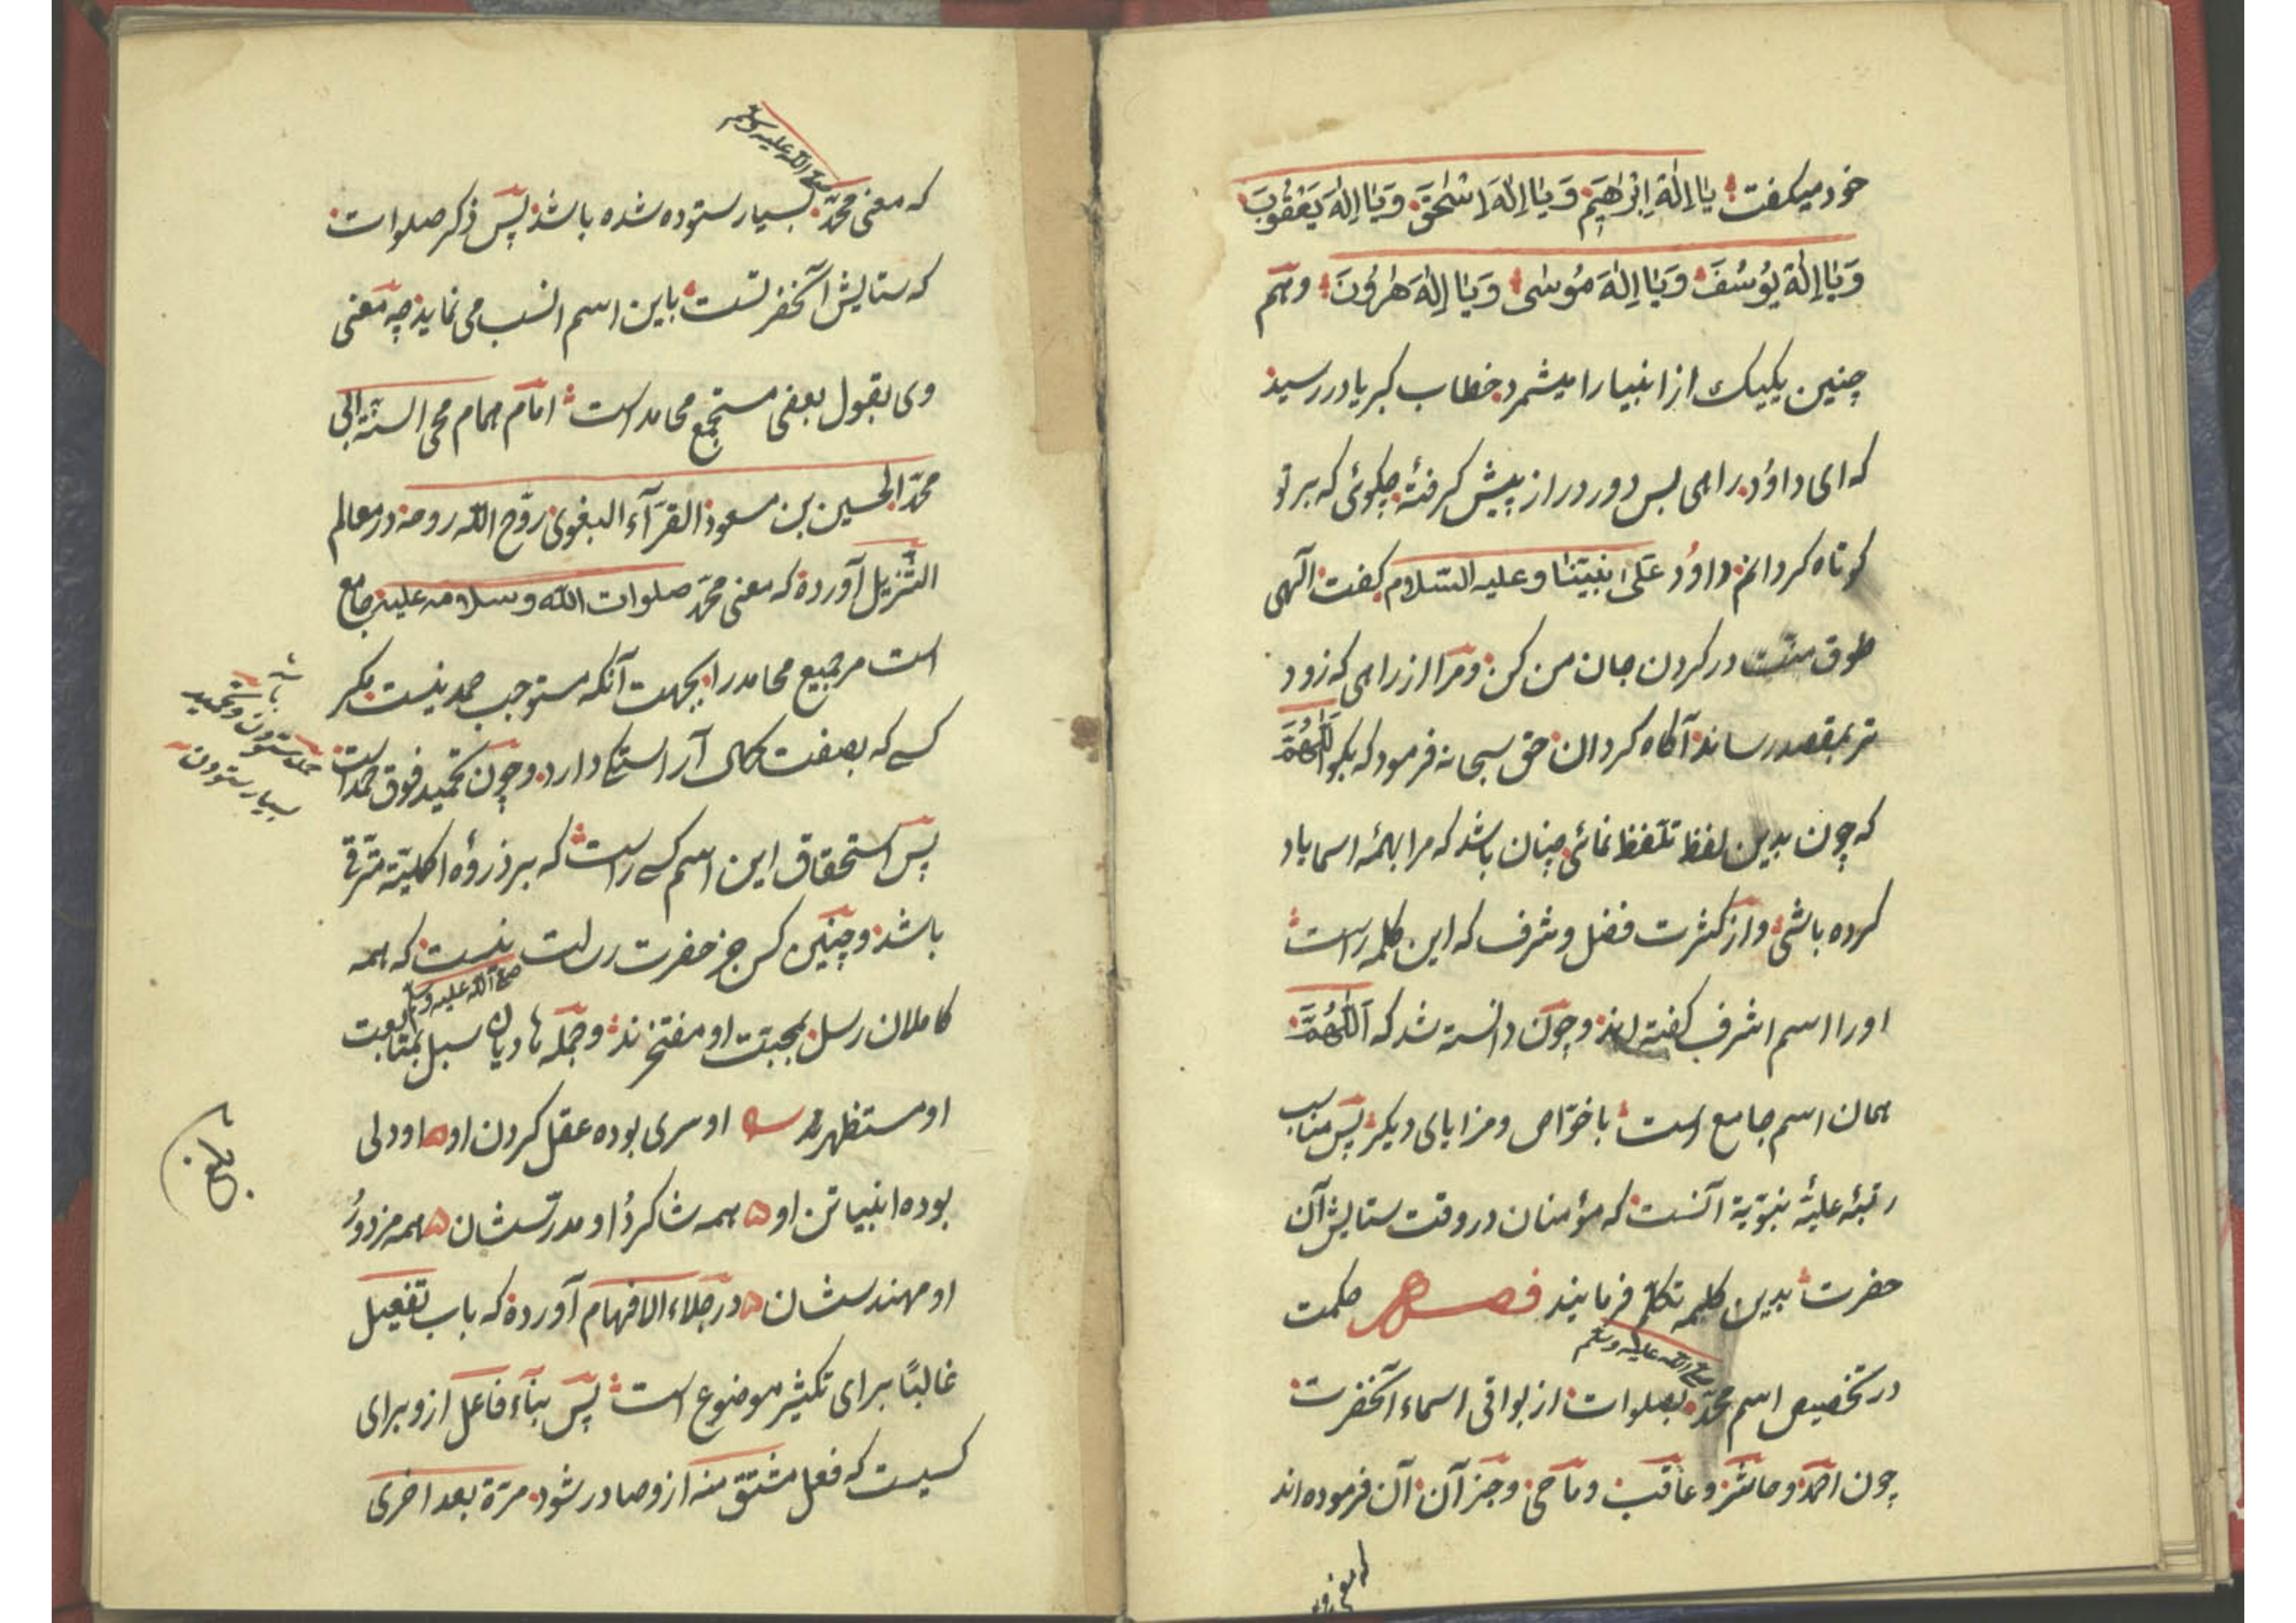 خود میکفت یَا اِلٰهَ اِبْرٰهِیْمَ وَ یَا اِلٰهَ اِسْحٰقَ وَ یَا اِلٰهَ یَعْقُوْبَ
وَ یَا اِلٰهَ یُوسُفَ وَ یَا اِلٰهَ مُوْسٰی وَ یَا اِلٰهَ هٰرُوْنَ وهم
چنین یکیک از انبیا را میشمرد خطاب کبریا در رسید
که ای داوُد راهی بس دور دراز پیش کرفتهٔ چکوئی که بر تو
کوتاه کردانم داوُد عَلیٰ نَبِیّنَا و علیه السّلام کفت الٓهی
طوق منّت در کردن جان من کن ومرا از راهی که زود
تر بمقصد رساند آکاه کردان حق سبحانه فرمود که بکو اَللّٰهُمَّ
که چون بدین لفظ تلفّظ نمائی چنان باشد که مرا بهمهٔ اسما یاد
کرده باشی واز کثرت فضل وشرف که این کلمه راست
اورا اسم اشرف کفته اند وچون دانسته شد که اَللّٰهُمَّ
همان اسم جامع است با خوّاص ومزایای دیکر پس مناسب
رتبهٔ علیّهٔ نبوّیة آنست که مؤمنان در وقت ستایش آن
حضرت بدین کلمه تکلّم فرمایند فصــل حکمت
صلی الله علیه وسلم
در تخصیص اسم محمّد بصلوات از بواقی اسماء آنحضرت
چون احمد وحاشر وعاقب وماحی وجز آن آن فرموده اند
که معنی محمد
صلی الله علیه وسلم
که معنی محمّد بسیار ستوده شده باشد پس ذکر صلوات
که ستایش آنحضرتست باین اسم انسب می نماید چه معنی
وی بقول بعضی مستجمع محامد است امام همام محی السنّة ابی
محمّد الحسین بن مسعود الفرّآء البغوی روّح الله روحه در معالم
التّنزیل آورده که معنی محمّد صلوات الله و سلامه علیه جامع
است مر جمیع محامد را بجهت آنکه مستوجب حمد نیست مکر
کسی که بصفت کمال آراستکی دارد وچون تحمید فوق حمد است
حمد ستودن وتحمید
بسیار ستودن
پس استحقاق این اسم کسی راست که بر ذروهٔ اکملیّة مترقّی
باشد وچنین کس جز حضرت رسالت نیست که همه
صلی الله علیه وسلم
کاملان رسل بمحبّت او مفتخرند وجمله هادیان سبل بمتابعت
او مستظهرند او سری بوده عقل کردن او او دلی
بوده انبیا تن او همه شاکردُ او مدرّسشان همه مزدورُ
او مهندسشان در جلاء الافهام آورده که باب تفعیل
غالبًا برای تکثیر موضوع است پس بناء فاعل ازو برای
کسیست که فعل مشتق منه ازو صادر شود مرّة بعد اخری